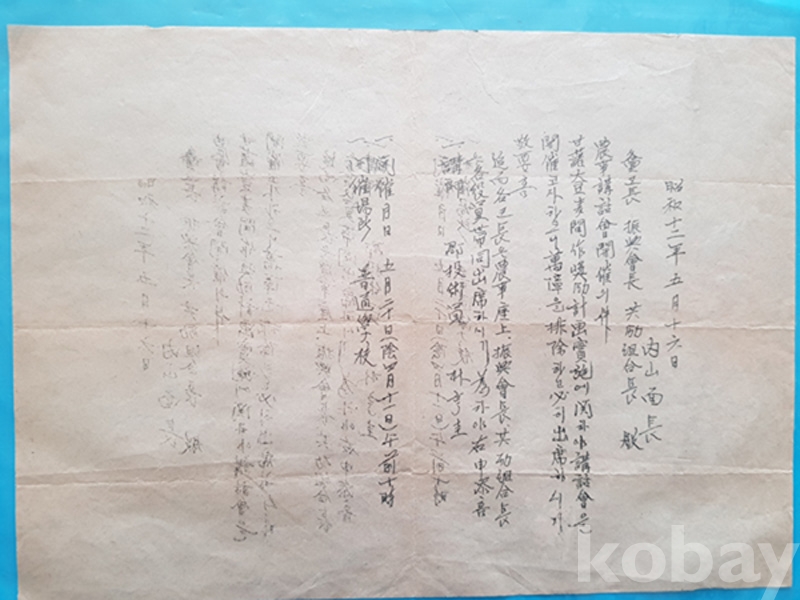 昭和十二年 五月十六日
內山面長
區長 振興會長 共励組合長 殿
農事講話會開催의件
甘藷大豆麦間作奬励計畵實施에関하야講話會을
開催코사하오니萬障을排除하고必히出席하시기
敬要喜
追而各區長은農事座上、振興會長共励組合長
各役員帯同出席하시기爲하야右申添喜
一、講師 郡技術員 朴
一、開催月日 五月二十日(陰四月十一日)午前十時
一、開催場所 普通學校
kobay